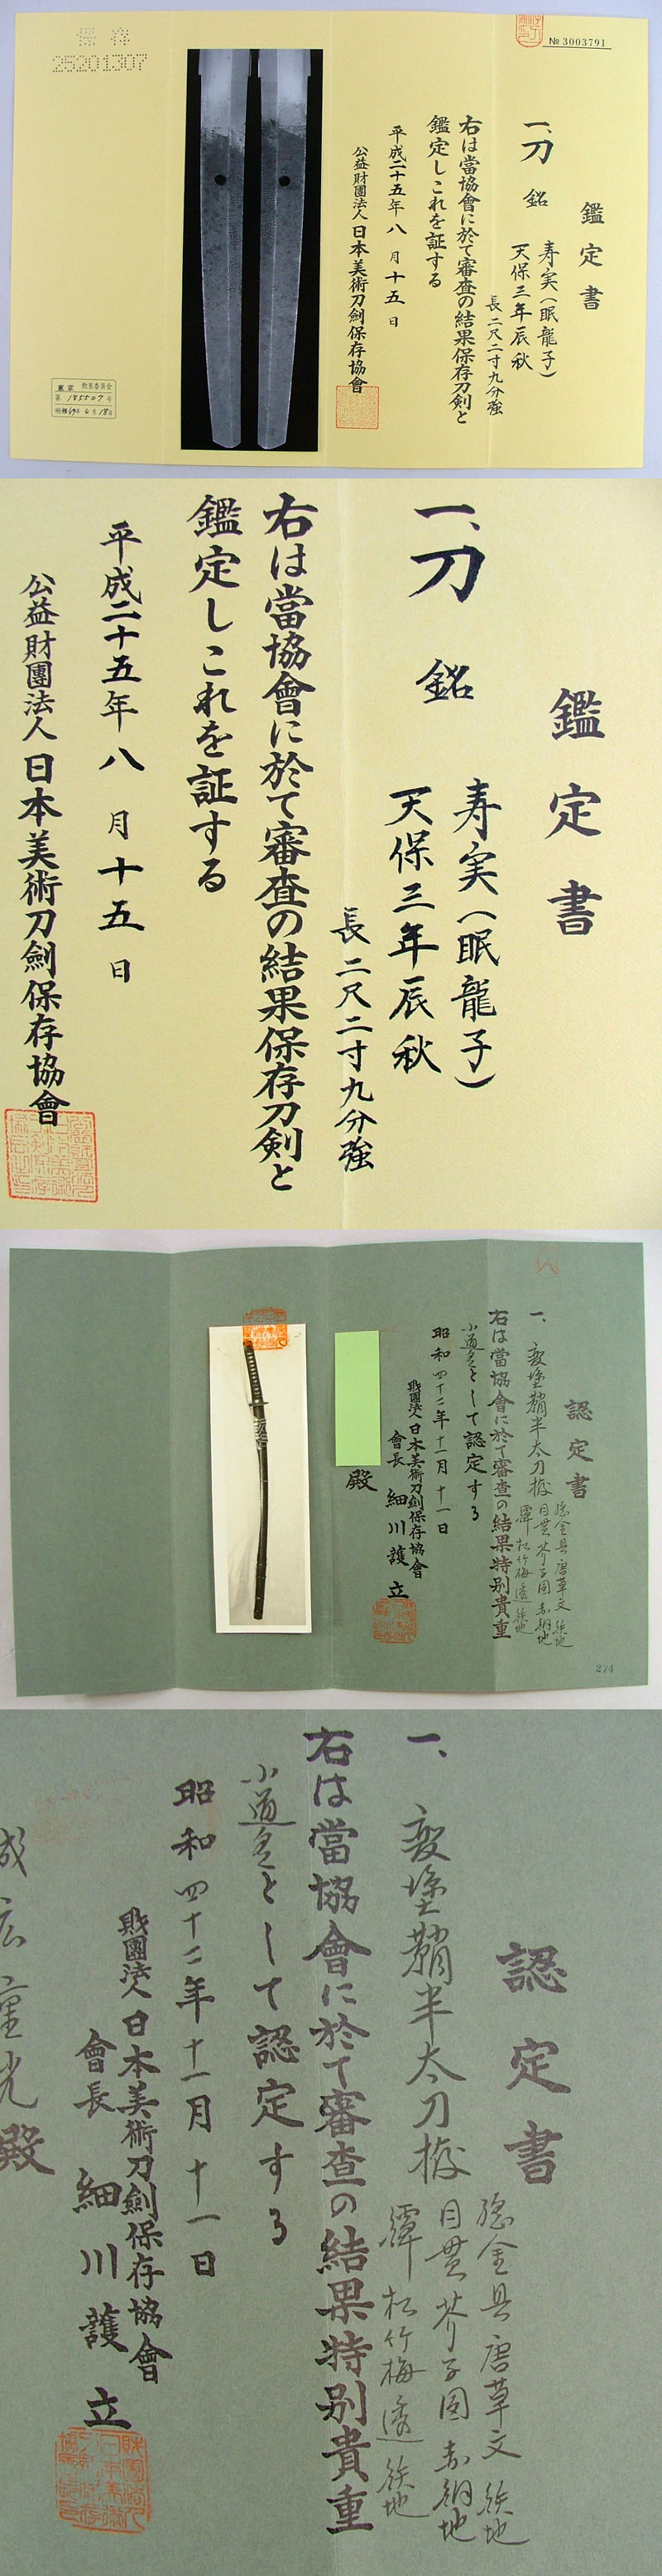 № 3003791
鑑定書
一、刀 銘 寿実(眠龍子)
天保三年辰秋
長 二尺二寸九分強
右は當協會に於て審査の結果保存刀剣と
鑑定しこれを証する
平成二十五年八月十五日
公益財團法人 日本美術刀劍保存協會
保存
25201307
東京 教育委員会
第 185507 号
昭和49年6月18日
鑑定書
一、刀 銘 寿実(眠龍子)
天保三年辰秋
長 二尺二寸九分強
右は當協會に於て審査の結果保存刀剣と
鑑定しこれを証する
平成二十五年八月十五日
公益財團法人 日本美術刀劍保存協會
認定書
一、変塗鞘半太刀拵
総金具唐草文鉄地
目貫芥子図赤銅地
鐔松竹梅透鉄地
右は當協會に於て審査の結果特別貴重
小道具として認定する
昭和四十二年十一月十一日
財團法人 日本美術刀劍保存協會
會長 細川護立
殿
274
認定書
一、変塗鞘半太刀拵
総金具唐草文鉄地
目貫芥子図赤銅地
鐔松竹梅透鉄地
右は當協會に於て審査の結果特別貴重
小道具として認定する
昭和四十二年十一月十一日
財團法人 日本美術刀劍保存協會
會長 細川護立
重光殿